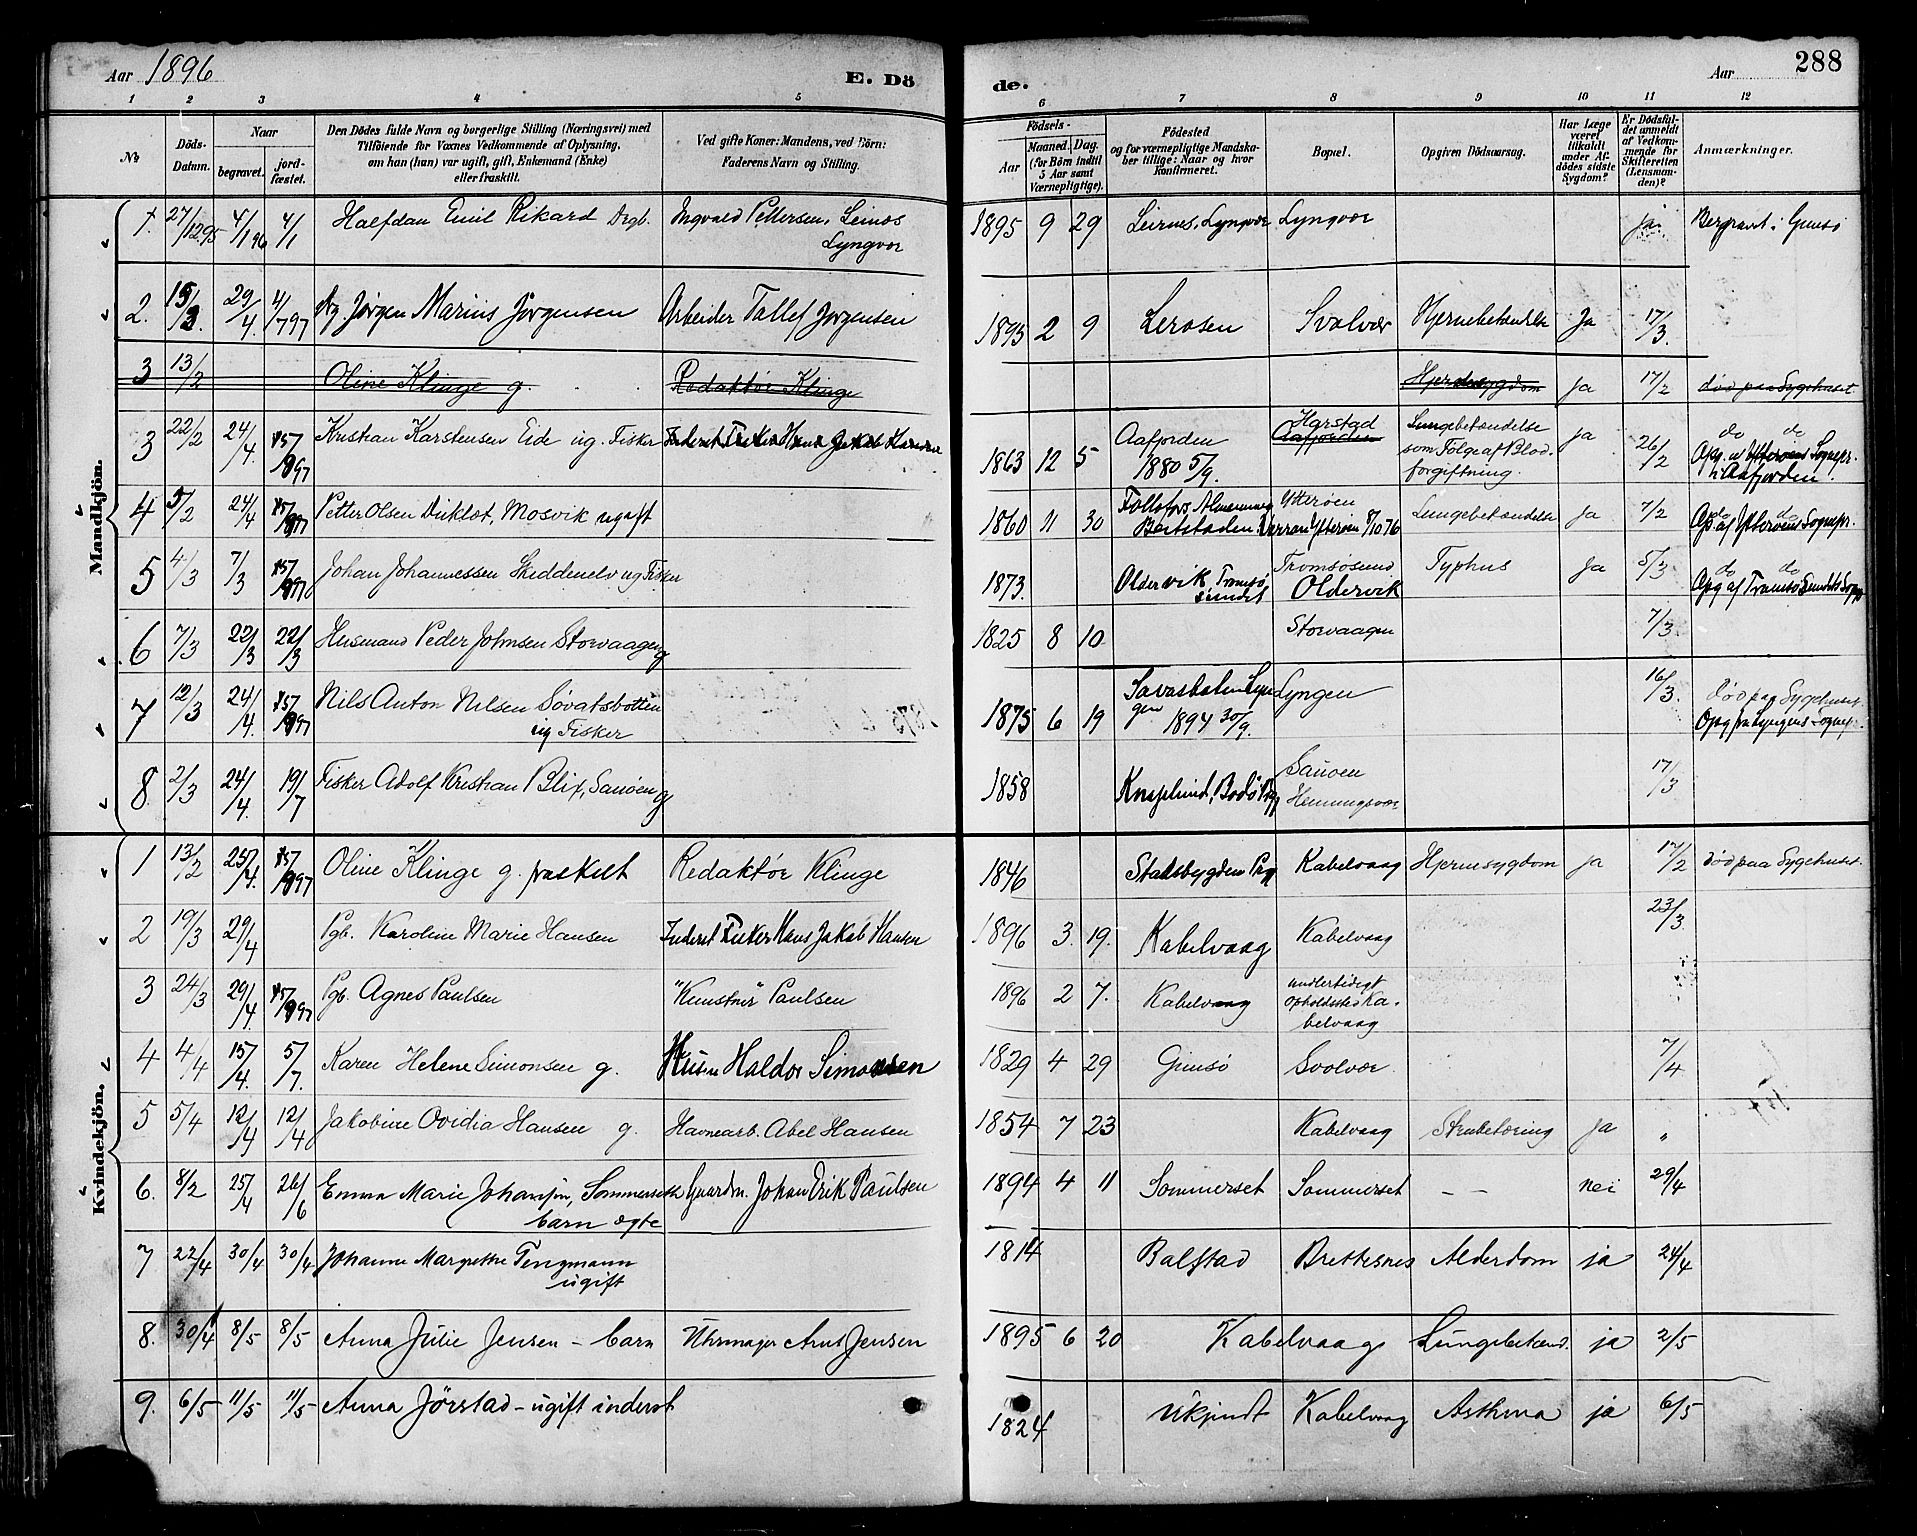 Aar 1896
E. Dö
de.
Aar
288
1 2 3 4 5 6 7 8 9 10 11 12
№
Döds-
Datum.
Naar
begravet.
jord-
fæstet.
Den Dödes fulde Navn og borgerlige Stilling (Næringsvei) med
Tilföiende for Voxnes Vedkommende af Oplysning,
om han (hun) var ugift, gift, Enkemand (Enke)
eller fraskilt.
Ved gifte Koner: Mandens, ved Börn:
Faderens Navn og Stilling.
Födsels-
Aar
Maaned.
Dag.
(for Börn indtil
5 Aar samt
Værnepligtige).
Födested
og for værnepligtige Mandska-
ber tillige: Naar og hvor
konfirmeret.
Bopæl.
Opgiven Dödsaarsag.
Har Læge
været
tilkaldt
under Af-
dödes sidste
Sygdom?
Er Dödsfal-
det anmeldt
af Vedkom-
mende for
Skifteretten
(Lensman-
den)?
Anmærkninger.
Mandkjön.
1. 27/12 95 4/1 96 4/1 Halfdan Emil Rikard Ingvald Pettersen, Leinæs 1895 9 29 Leirnes, Lyngvær Lyngvær ja Begravet i Gimsø
Lyngvær
2. 29/4. 4/7 97 Jørgen Marius Jørgensen Arbeider Tallef Jørgensen 1895 2 9 Lerosen Svolvær Hjernebetændelse Ja 17/3.
3 13/2 Oline Klinge g. Redaktør Klinge Hjernesygdom ja 17/2 død paa Sygehuset
3 22/2 24/4. Kristian Karstensen Eide ug. Fisker 1863 12 5 Aafjorden Harstad Lungebetændelse ja 26/2 do do
1880 5/9. Aafjorden som Følge af Blod-
forgiftning. i Aafjorden.
4 5/2 24/4 Petter Olsen Dirklot, Mosvik ugift 1860 11 30 Ytterøen Lungebetændelse ja 7/2
5 4/3 7/3 Johan Johannessen Skiddenelv ug Fisker 1873. Oldervik Tromsø Tromsøsund Typhus Ja 5/3 do do
sundet Oldervik
6 7/3 22/3 22/3 Husmand Peder Johnsen Storvaagen g 1825 8 10 Storvaagen 7/3
7 12/3 24/4. Nils Anton Nilsen Søvatsbotten 1875 6 19 Lyngen 16/3. død paa Sygehuset
ug Fisker 1894 30/9.
8. 2/3 24/4. 19/7 Fisker Adolf Kristian Blix, Sauøen g 1858 Knaplund, Bodø Pg Sauøen 17/3
Henningsvær
Kvindekjön.
1 13/2 25/4. Oline Klinge g. fraskilt Redaktør Klinge 1846 Stadsbygden Kabelvaag Hjernesygdom ja 17/2 død paa Sygehuset.
2 19/3 29/4 Pgb. Karoline Marie Hansen Inderst Fisker Hans Jakob Hansen 1896 3. 19. Kabelvaag Kabelvaag 23/3.
3 24/3 29/4. Pgb. Agnes Paulsen "Kunstner" Paulsen 1896 2 7. Kabelvaag midlertidigt
opholdsted Ka-
belvaag
4 4/4 15/4. 5/7. Karen Helene Simonsen g. Haldor Simonsen 1829 4 29 Gimsø Svolvær 7/4
5 5/4 12/4 12/4 Jakobine Ovidia Hansen g. Havnearb. Abel Hansen 1854 7 23 Kabelvaag Strubetæring ja "
6. 8/2 25/4 26/6 Emma Marie Johansen, Sommerseth Gaardm. Johan Erik Paulsen 1894 4 11 Sommerset Sommerset — — nei 29/4
barn ægte
7 22/4 30/4 30/4 Johanne Margrethe Tengmann 1814 Balstad Brettesnes Alderdom ja 24/4
ugift
8. 30/4 8/5 8/5 Anna Julie Jensen - barn Uhrmager Arnt Jensen 1895 6 20 Kabelvaag Lungebetænd. ja 2/5
9. 6/5 11/5 11/5 Anna Jørstad - ugift inderst 1824 Ukjendt Kabelvaag Asthma ja 6/5